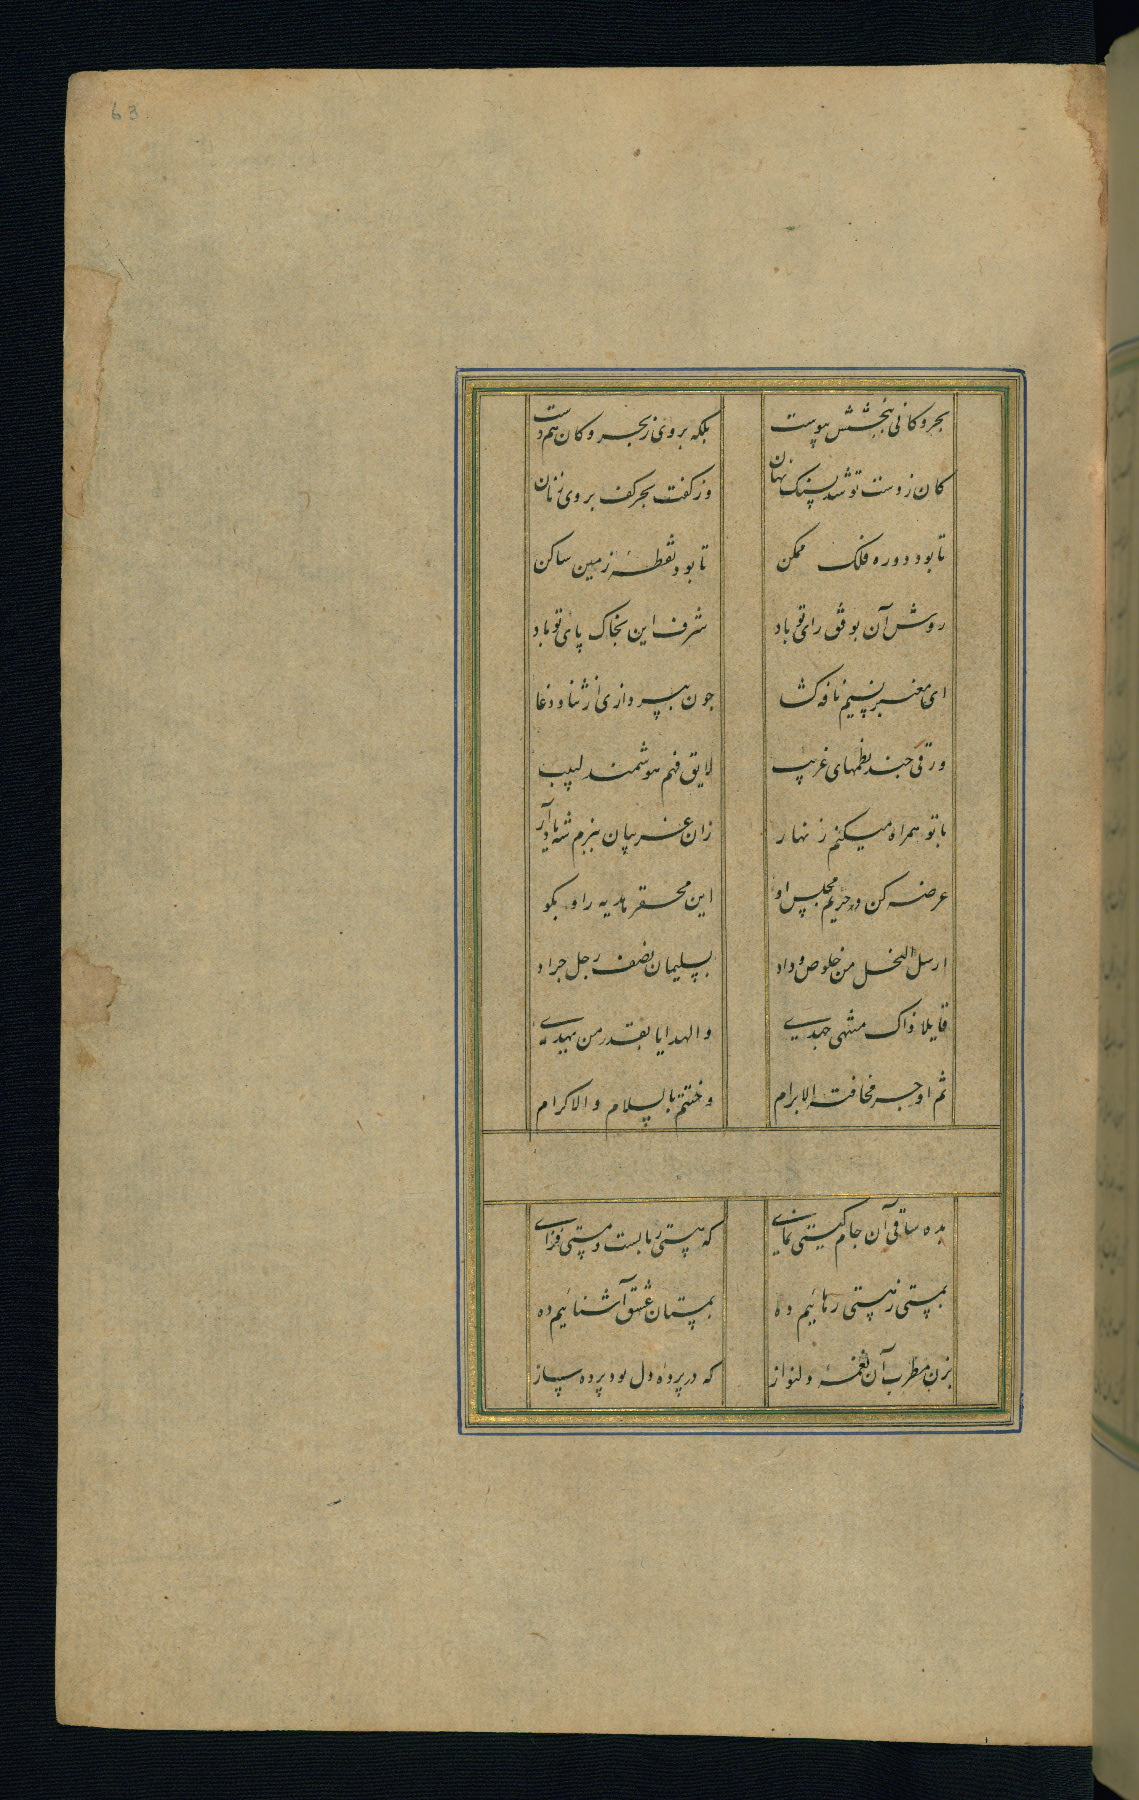 63
بحر و کانی ببخشش پیوست بلکه بروی ز بحر و کان هم دست
کان ز دست تو شد بسنک نهان وز کفت بحر کف بروی زنان
تا بود دوره فلک ممکن تا بود نقطه زمین ساکن
روش آن بوفق رای تو باد شرف این بخاک پای تو باد
ای معنبر نسیم نافه کشا چون بپردازی از ثنا و دعا
ورقی چند نظمهای غریب لایق فهم هوشمند لبیب
با تو همراه میکنم زنهار زان غریبان ببزم شه یاد آر
عرضه کن در حریم مجلس او این محقر هدیه را و بکو
ارسل النمل من خلوص وداد بسلیمان نصف رجل جراد
قایلا ذاک منتهی جهدی والهدایا بقدر من یهدی
ثم اوجز مخافت الابرام و ختم بالسلام والاکرام
بده ساقی آن جام کیتی نمای که هستی ربایست و مستی فزای
بمستی ز هستی رهائیم ده بمستان عشق آشنائیم ده
بزن مطرب آن نغمهٔ دلنواز که در پرده دل بود پرده ساز